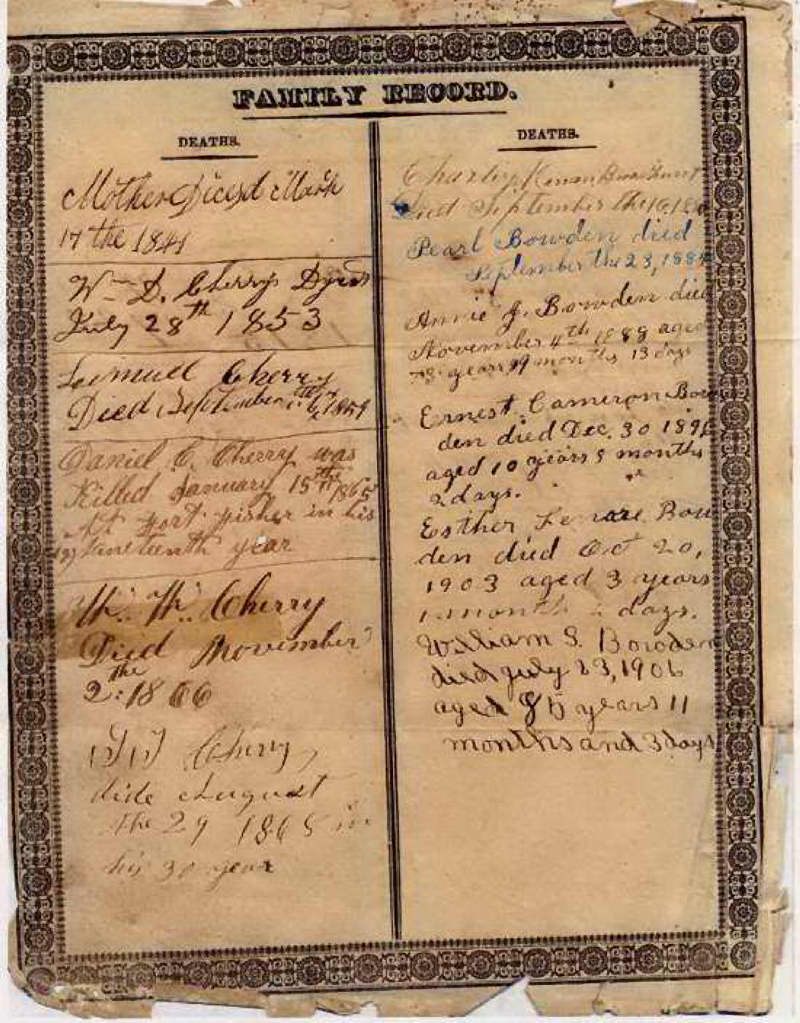 FAMILY RECORD.
DEATHS.
Mother Dicesd March
17 the 1841
Wm D. Cherrys Dyed
July 28th 1853
Lemuel Cherry
Died September the
Daniel C. Cherry was
Killed January 15th 1865
At Fort Fisher in his
(19) Nineteenth year
W. W. Cherry
Died November
2 the 1866
Cherry
dide August
the 29 1865 in
his 30 year
DEATHS.
Charley
Died September the 16
Pearl Bowden died
September the 23, 188
Annie J. Bowden died
November 4th 1888 aged
years 9 months 13 days
Ernest Cameron Bow
den died Dec. 30 189
aged 10 years 9 months
2 days.
Esther Bow
den died Oct 20,
1903 aged 3 years
1 month days.
William S. Bowden
died July 23, 1906
aged 85 years 11
months and 3 days